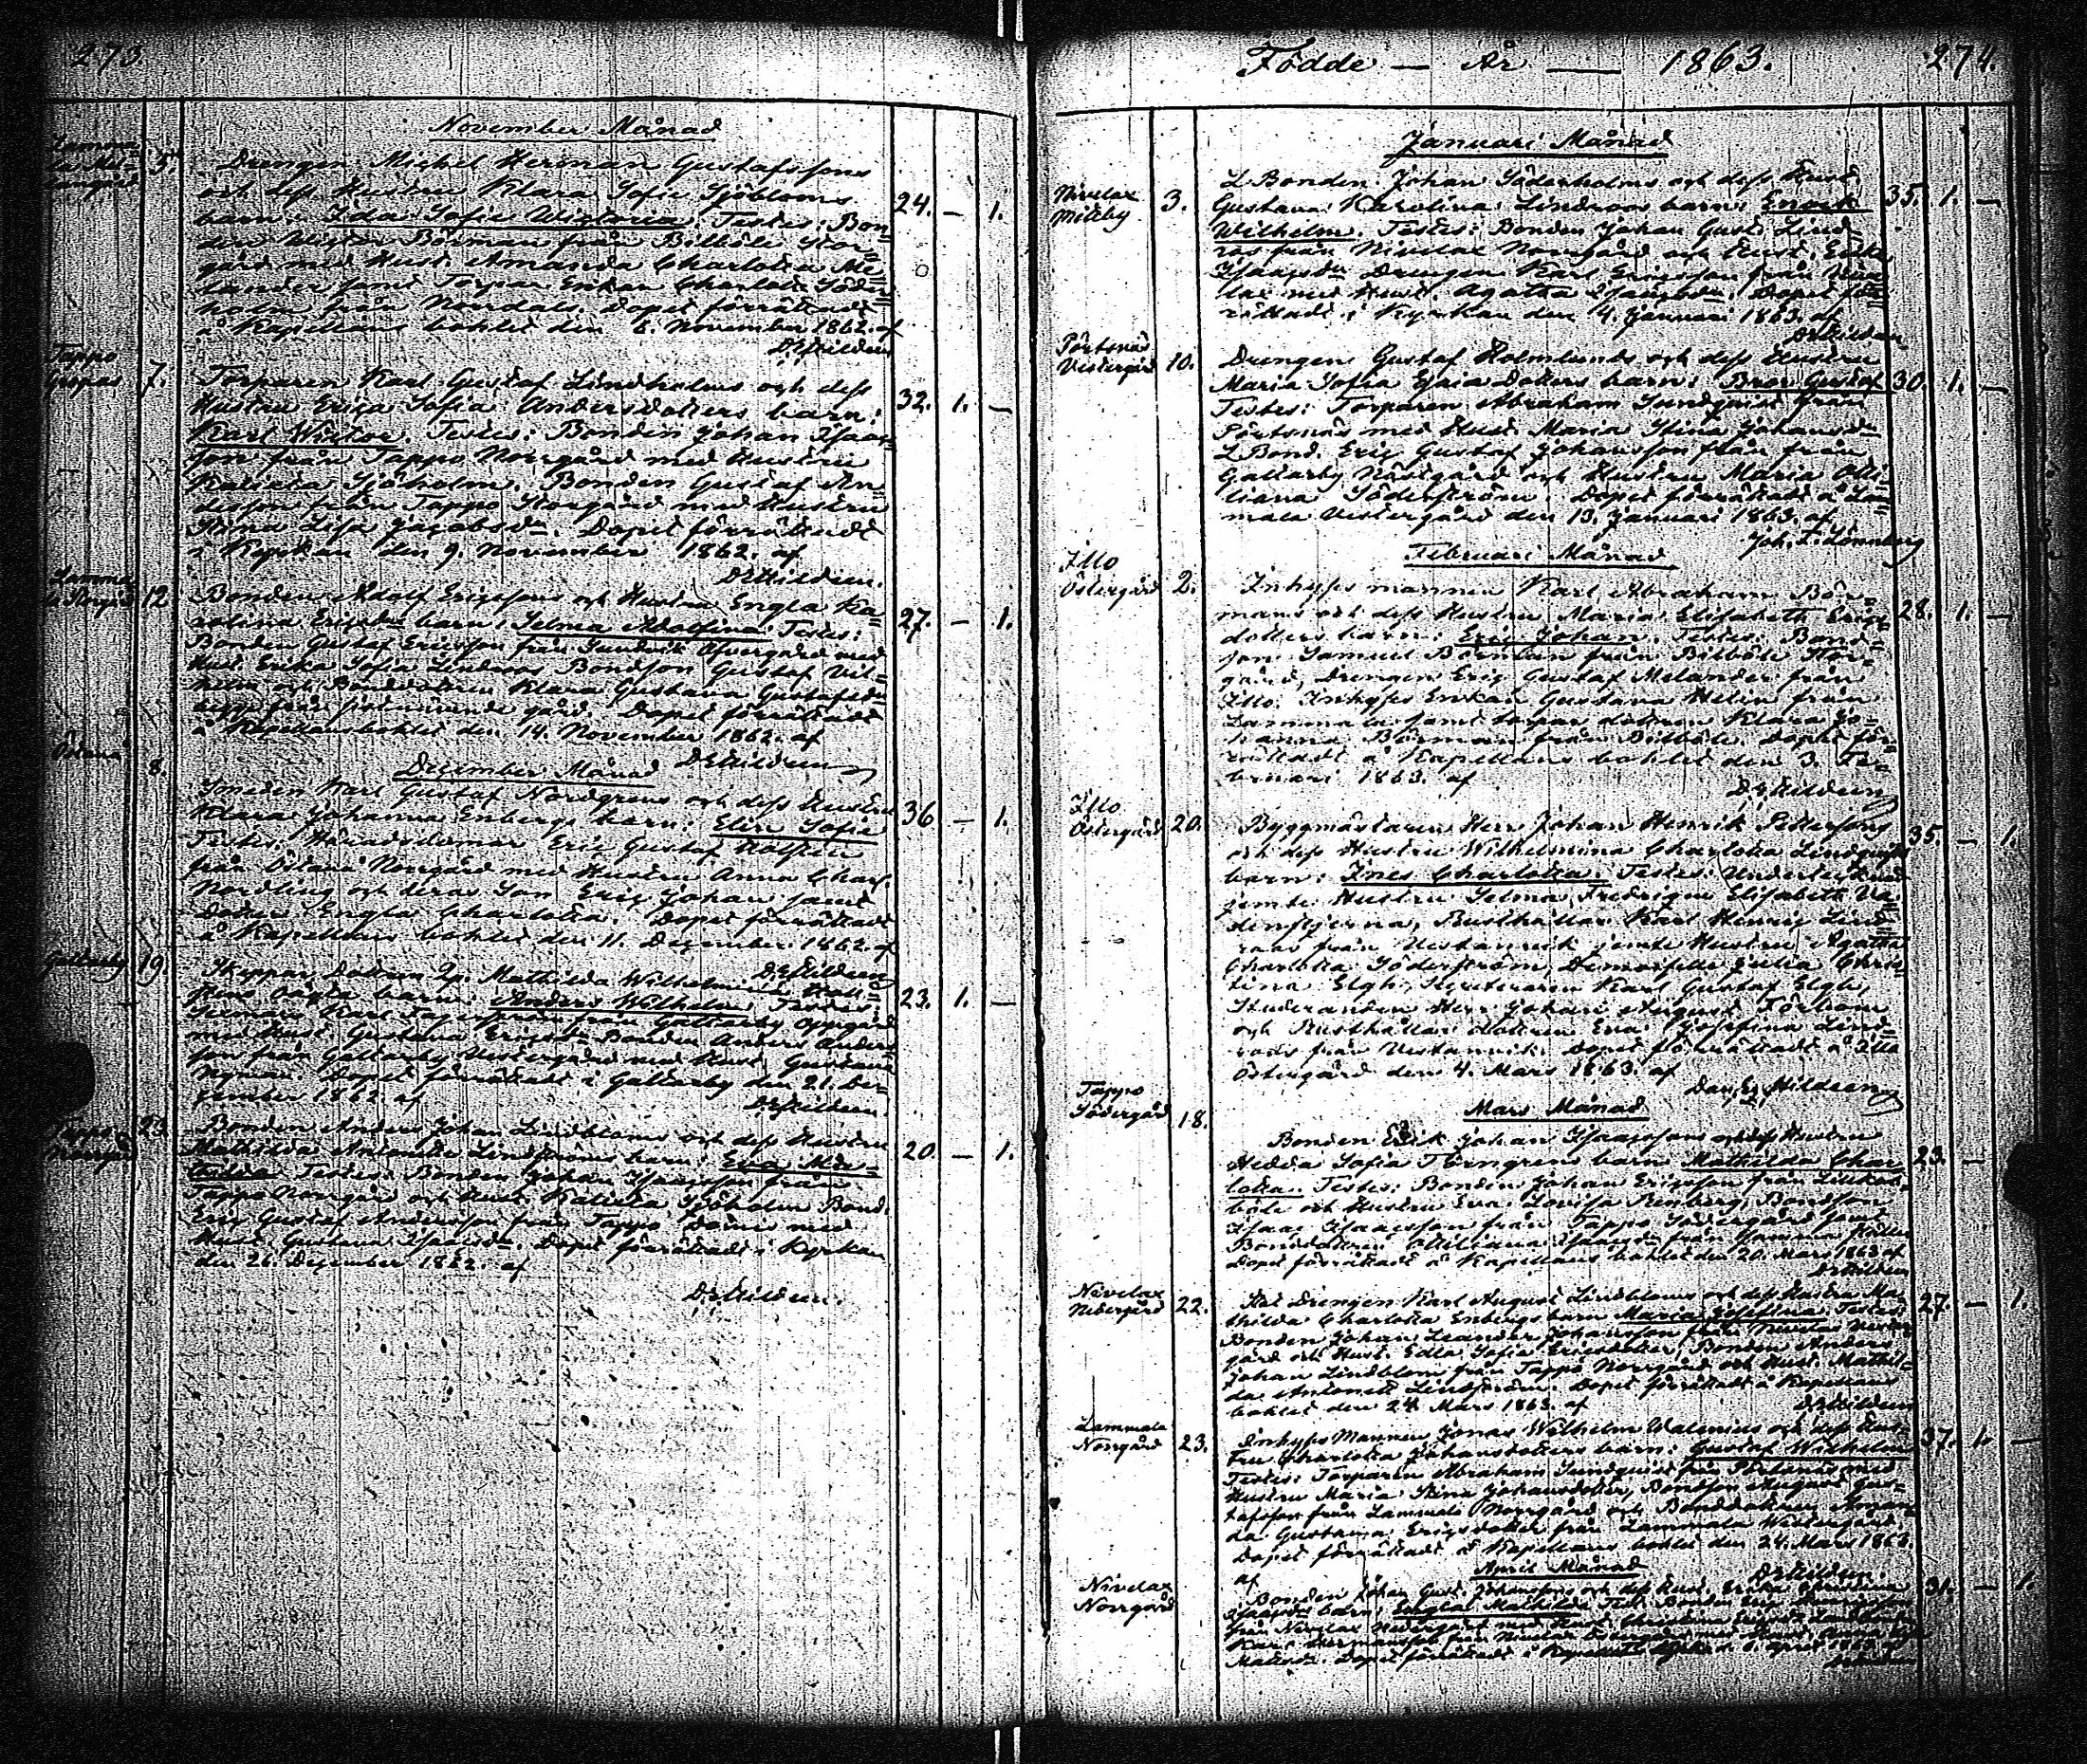 273.
November Månad
5.
Drengen Michel Herman Gustafssons
och dess Hustru Klara Sofie Sjöbloms
barn: Ida Sofie Wictoria Testes: Bon-
24. — 1.
den Börman från Bilböle Stor-
gård med Hust. Amanda Charlotta Me-
lander samt Torpar Enkan Charlotta Söder-
holm från Nordals. Dopet förrättadt
å Kapellans bohlet den 6. November 1862. af
D: E: Hildeen
Tappo
7.
Torparen Karl Gustaf Lindholms och dess
Hustru Erica Sofia Andersdotters barn:
32. 1. —
Karl Wictor. Testes: Bonden Johan Isaas-
son från Tappo Norrgård med Hustru
Sjöholm. Bonden Gustaf An-
desson från Tappo Storgård med Hustru
Stina Lisa Jacobsdr. Dopet förrättadt
i Kyrkan den 9. November 1862. af
D: E: Hildeen.
12
Bonden Adolf Ericssons och Hustru Engla Ka-
rolina Ericsdr barn: Selma Adolfina Testes:
27. — 1.
Bonden Gustaf Ericsson från Sundvik Öfvergård med
Hust. Erika Sofia Lindroos Bondson Gustaf Vil-
helm och Bonddottren Klara Gustava Gustafsdr
från gård. Dopet förrättadt
å Kapellansbohlet den 14. November 1862. af
D: E: Hildeen
December Månad
8.
Smeden Karl Gustaf Nordgrens och dess Hustru
Klara Johanna Enbergs barn: Elin Sofie
36 — 1.
Testes: Häradsdomar Eric Gustaf
från Norrgård med Hustru Anna Charl.
Nordlius och deras Son Eric Johan samt
Dotter Engla Charlotta. Dopet förrättadt
å Kapellans bohlet den 11. December 1862. af
D: E: Hildeen
Galtarby 19.
Skeppar Dottren Mathilda Wilhelmina
barn: Anders Wilhelm Testes:
23. 1. —
Karl från Galtarby Oppgård
med Hust Gustava Ericsdr Bonden Anders Anders-
son från Galtarby Vestergård med Hust Gustava
Nyman. Dopet förrättadt i Galtarby den 21. De-
cember 1862. af
D: E: Hildeen.
Tappo
Norrgård
23
Bonden Anders Johan Lindbloms och dess Hustru
Mathilda Antonette Lindströms barn: Eva Ma-
20. — 1.
thilda Testes: Bonden Johan Isaacsson från
Tappo Norrgård och Hust. Sjöholm Bond.
Eric Gustaf Andersson från Tappo med
Hust. Gustava Isaacsdr. Dopet förrättadt i Kyrkan
den 26. December 1862. af
D: E: Hildeen.
Födde — År — 1863.
274.
Januari Månad
Nivelax
Mitlby
3.
L Bonden Johan Söderholms och dess Hust.
Gustava Karolina Lindroos barn: Enock
35. 1. —
Wilhelm. Testes: Bonden Johan Gust. Lind-
ros från Nivelax Norrgård och Hust.
Isaacsdr Drengen Karl Ericsson från Nive-
lax med Hust. Agatha Isaacsdr. Dopet för-
rättadt i Kyrkan den 4. Januari 1863. af
D: E: Hildeen
Pörtsnäs
Vestergård 10.
Drengen Gustaf Holmlunds och dess Hustru
Maria Sofia Esaia Dotters barn: Bror Gustaf
30. 1. —
Testes: Torparen Abraham Sundqvist från
Pörtsnäs med Hust. Maria Stina Johansdr
L Bond. Eric Gustaf Johansson från från
Galtarby Nästgård och Hustru Maria Otti-
liana Söderström. Dopet förrättadt å Lam-
mala Vestergård den 13. Januari 1863. af
Joh. F. Lönnberg
Februari Månad
Illo
Östergård 2.
Inhyses mannen Karl Abraham Bör-
mans och dess Hustru Maria Elisabeth Erics
28. 1. —
dotters barn: Eric Johan. Testes: Bond-
son Samuel Börman från Bilböle Stor-
gård, Drengen Eric Gustaf Melander från
Illo. Inhyses Enkan Gustava Helin från
Lammala samt torpar dottren Klara Jo-
hanna Börman från Bilböle. Dopet för-
rättadt å Kapellans bohlet den 3. Fe-
bruari 1863. af
D: E: Hildeen
Illo
Östergård 20.
Byggmästaren Herr Johan Henrik Pettersons
och dess Hustru Wilhelmina Charlotta Lindqvists
35. — 1.
barn: Ines Charlotta. Testes: Undertecknad
jemte Hustru Selma Fredrique Elisabeth
Rusthållar Karl Henric Lind-
roos från Vestanvik jemte Hustru Agatha
Charlotta Söderström, Demoiselle Julia Chris-
tina Elgh, Skeuteraren Karl Gustaf Elgh,
Studeranden Herr Johan August Törbom
och Rusthållar dottren Eva Josefina Lind-
roos från Vestanvik. Dopet förrättadt å Illo
Östergård den 4. Mars 1863. af
Dan. E. Hildeen
Mars Månad
Tappo
Södergård 18.
Bonden Erik Johan Isaacssons och dess Hustru
Hedda Sofia Törngrens barn Mathilda Char-
23. —
lotta. Testes: Bonden Johan Ericsson från
böle och Hustru Eva Lovisa Renberg, Bondson
Isaac Isaacsson från Tappo Södergård samt
Bonddottren Ottiliana Isaacsdr från samma ställe
Dopet förrättadt å Kapellans bohlet den 20. Mars 1863 af
D: E: Hildeen
Nivelax
Nedergård 22.
Drengen Karl August Lindbloms och dess Hustru Ma-
thilda Charlotta Enbergs barn Maria Josefina. Testes:
27. — 1.
Bonden Johan Leander Johansson från Nivelax Vester-
gård och Hust. Edla Sofia Ericsdotter, Bonden Anders
Johan Lindblom från Tappo Norrgård och Hust Mathil-
da Antonett Lindström. Dopet förrättadt å Kapellans
bohlet den 24. Mars 1863. af
D: E: Hildeen
Lammala
Norrgård 23.
Inhyses Mannen Jonas Wilhelm Walenius och dess Hus-
tru Charlotta Johansdotters barn: Gustaf Wilhelm
37. 1. —
Testes: Torparen Abraham Sundqvist från med
Hustru Maria Stina Johansdotter, Bondson August Gus-
tafsson från Lammala Norrgård och Bonddottren Aman-
da Gustava Ericsdotter från Lammala Westergård.
Dopet förrättadt å Kapellans bohlet den 24. Mars 1863.
af
D: E: Hildeen.
April Månad
Nivelax
Norrgård
Bonden Johan Gust. Johanssons och dess Hust. Erika
31. — 1.
Isaacsdr barn, Engla Mathilda Test. Bonden Eric
från Nivelax Nedergård med Hust.
Karl Hermansson från
Dopet förrättadt i 6. April 1863 af